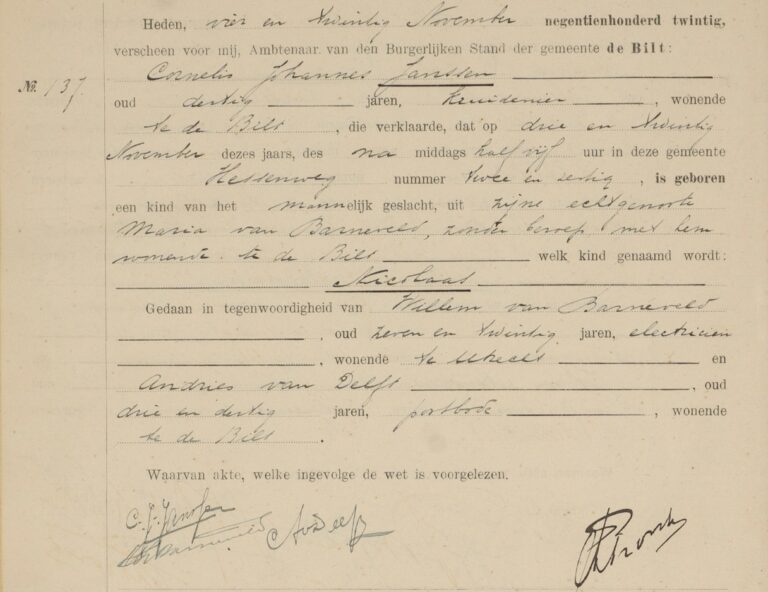 Heden, vier en twintig November negentienhonderd twintig,
verscheen voor mij, Ambtenaar van den Burgerlijken Stand der gemeente de Bilt:
Cornelis Johannes Janssen
No. 137
oud dertig jaren, kruidenier, wonende
te de Bilt, die verklaarde, dat op drie en twintig
November dezes jaars, des na middags half vijf uur in deze gemeente
Hessenweg nummer twee en dertig, is geboren
een kind van het mannelijk geslacht, uit zijne echtgenoote
Maria van Barneveld, zonder beroep, met hem
wonende te de Bilt welk kind genaamd wordt:
Nicolaas
Gedaan in tegenwoordigheid van Willem van Barneveld
, oud zeven en twintig jaren, electricien
, wonende te Utrecht en
Andries van Delft, oud
drie en dertig jaren, postbode, wonende
te de Bilt.
Waarvan akte, welke ingevolge de wet is voorgelezen.
C. J. Janssen